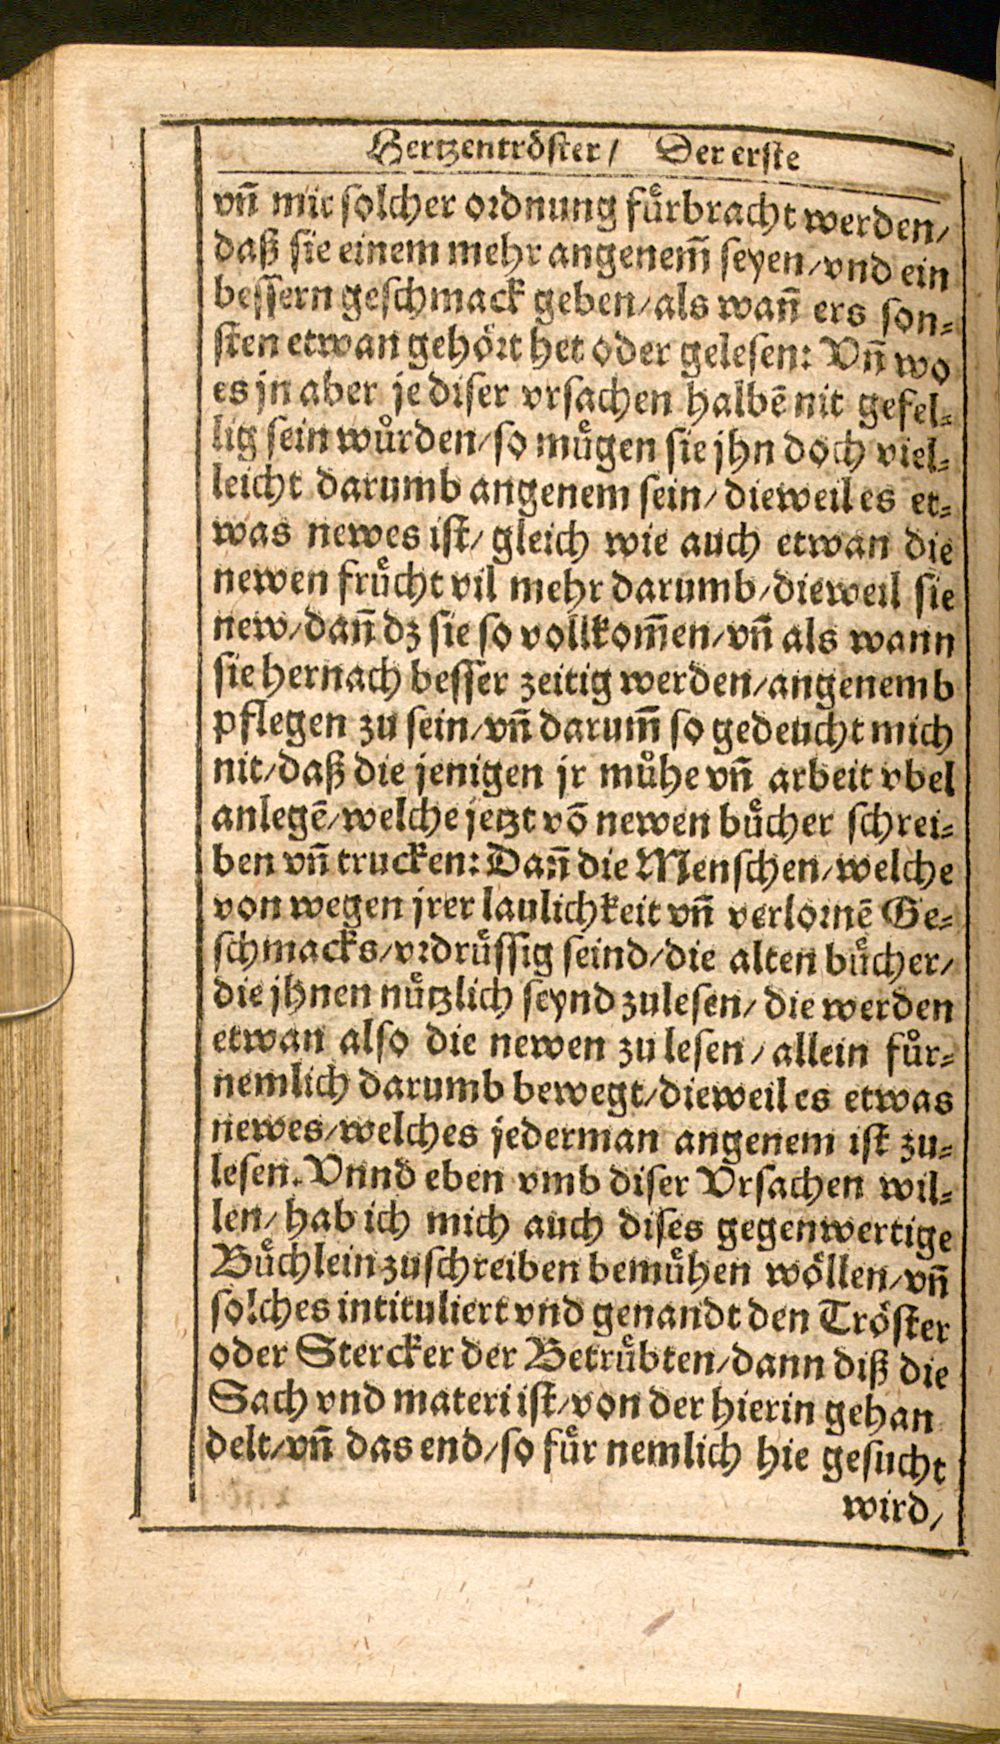 Hertzentröster / Der erste
vn̄ mit solcher ordnung fuͤrbracht werden /
daß sie einem mehr angenem̄ seyen / vnd ein
bessern geschmack geben / als wan̄ ers son⸗
sten etwan gehört het oder gelesen: Vn̄ wo
es jn aber je diser vrsachen halbē nit gefel⸗
lig sein wuͤrden / so muͤgen sie jhn doch viel⸗
leicht darumb angenem sein / dieweil es et⸗
was newes ist / gleich wie auch etwan die
newen fruͤcht vil mehr darumb / dieweil sie
new / dan̄ dz sie so vollkom̄en / vn̄ als wann
sie hernach besser zeitig werden / angenemb
pflegen zu sein / vn̄ darum̄ so gedeucht mich
nit / daß die jenigen jr muͤhe vn̄ arbeit vbel
anlegē / welche jetzt vō newen buͤcher schrei⸗
ben vn̄ trucken: Dan̄ die Menschen / welche
von wegen jrer laulichkeit vn̄ verlornē Ge⸗
schmacks / vrdruͤssig seind / die alten buͤcher /
die jhnen nuͤtzlich seynd zulesen / die werden
etwan also die newen zu lesen / allein fuͤr⸗
nemlich darumb bewegt / dieweil es etwas
newes / welches jederman angenem ist zu⸗
lesen. Vnnd eben vmb diser Vrsachen wil⸗
len / hab ich mich auch dises gegenwertige
Buͤchlein zuschreiben bemuͤhen woͤllen / vn̄
solches intituliert vnd genandt den Tröster
oder Stercker der Betruͤbten / dann diß die
Sach vnd materi ist / von der hierin gehan
delt / vn̄ das end / so fuͤr nemlich hie gesucht
wird /